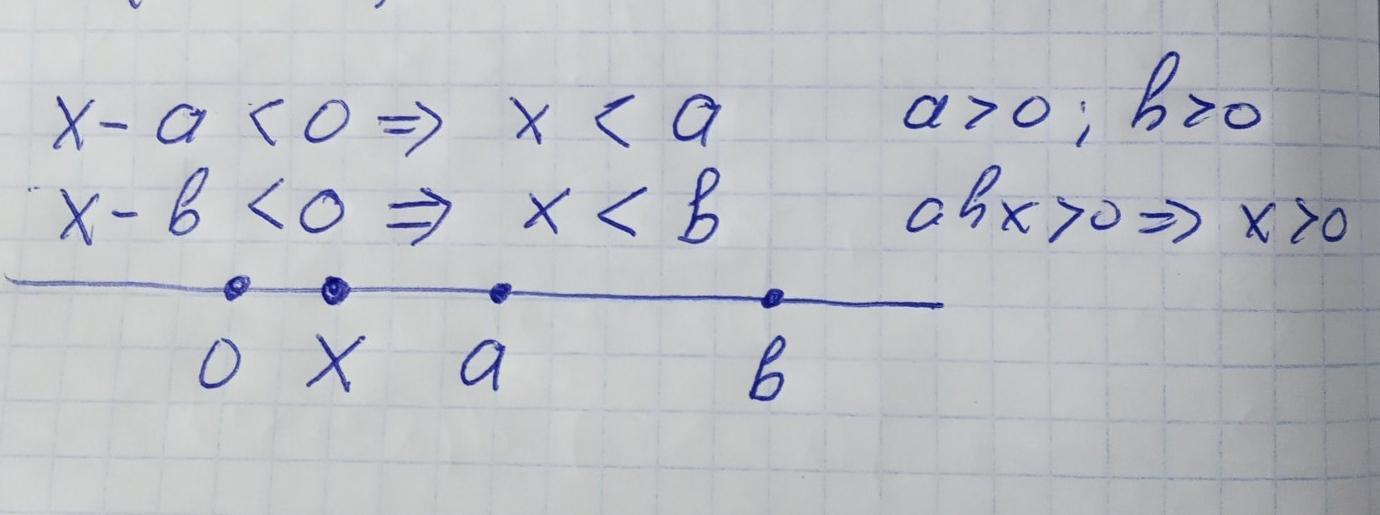 x - a < 0 => x < a a > 0 ; b > 0
x - b < 0 => x < b abx > 0 => x > 0
0 x a b